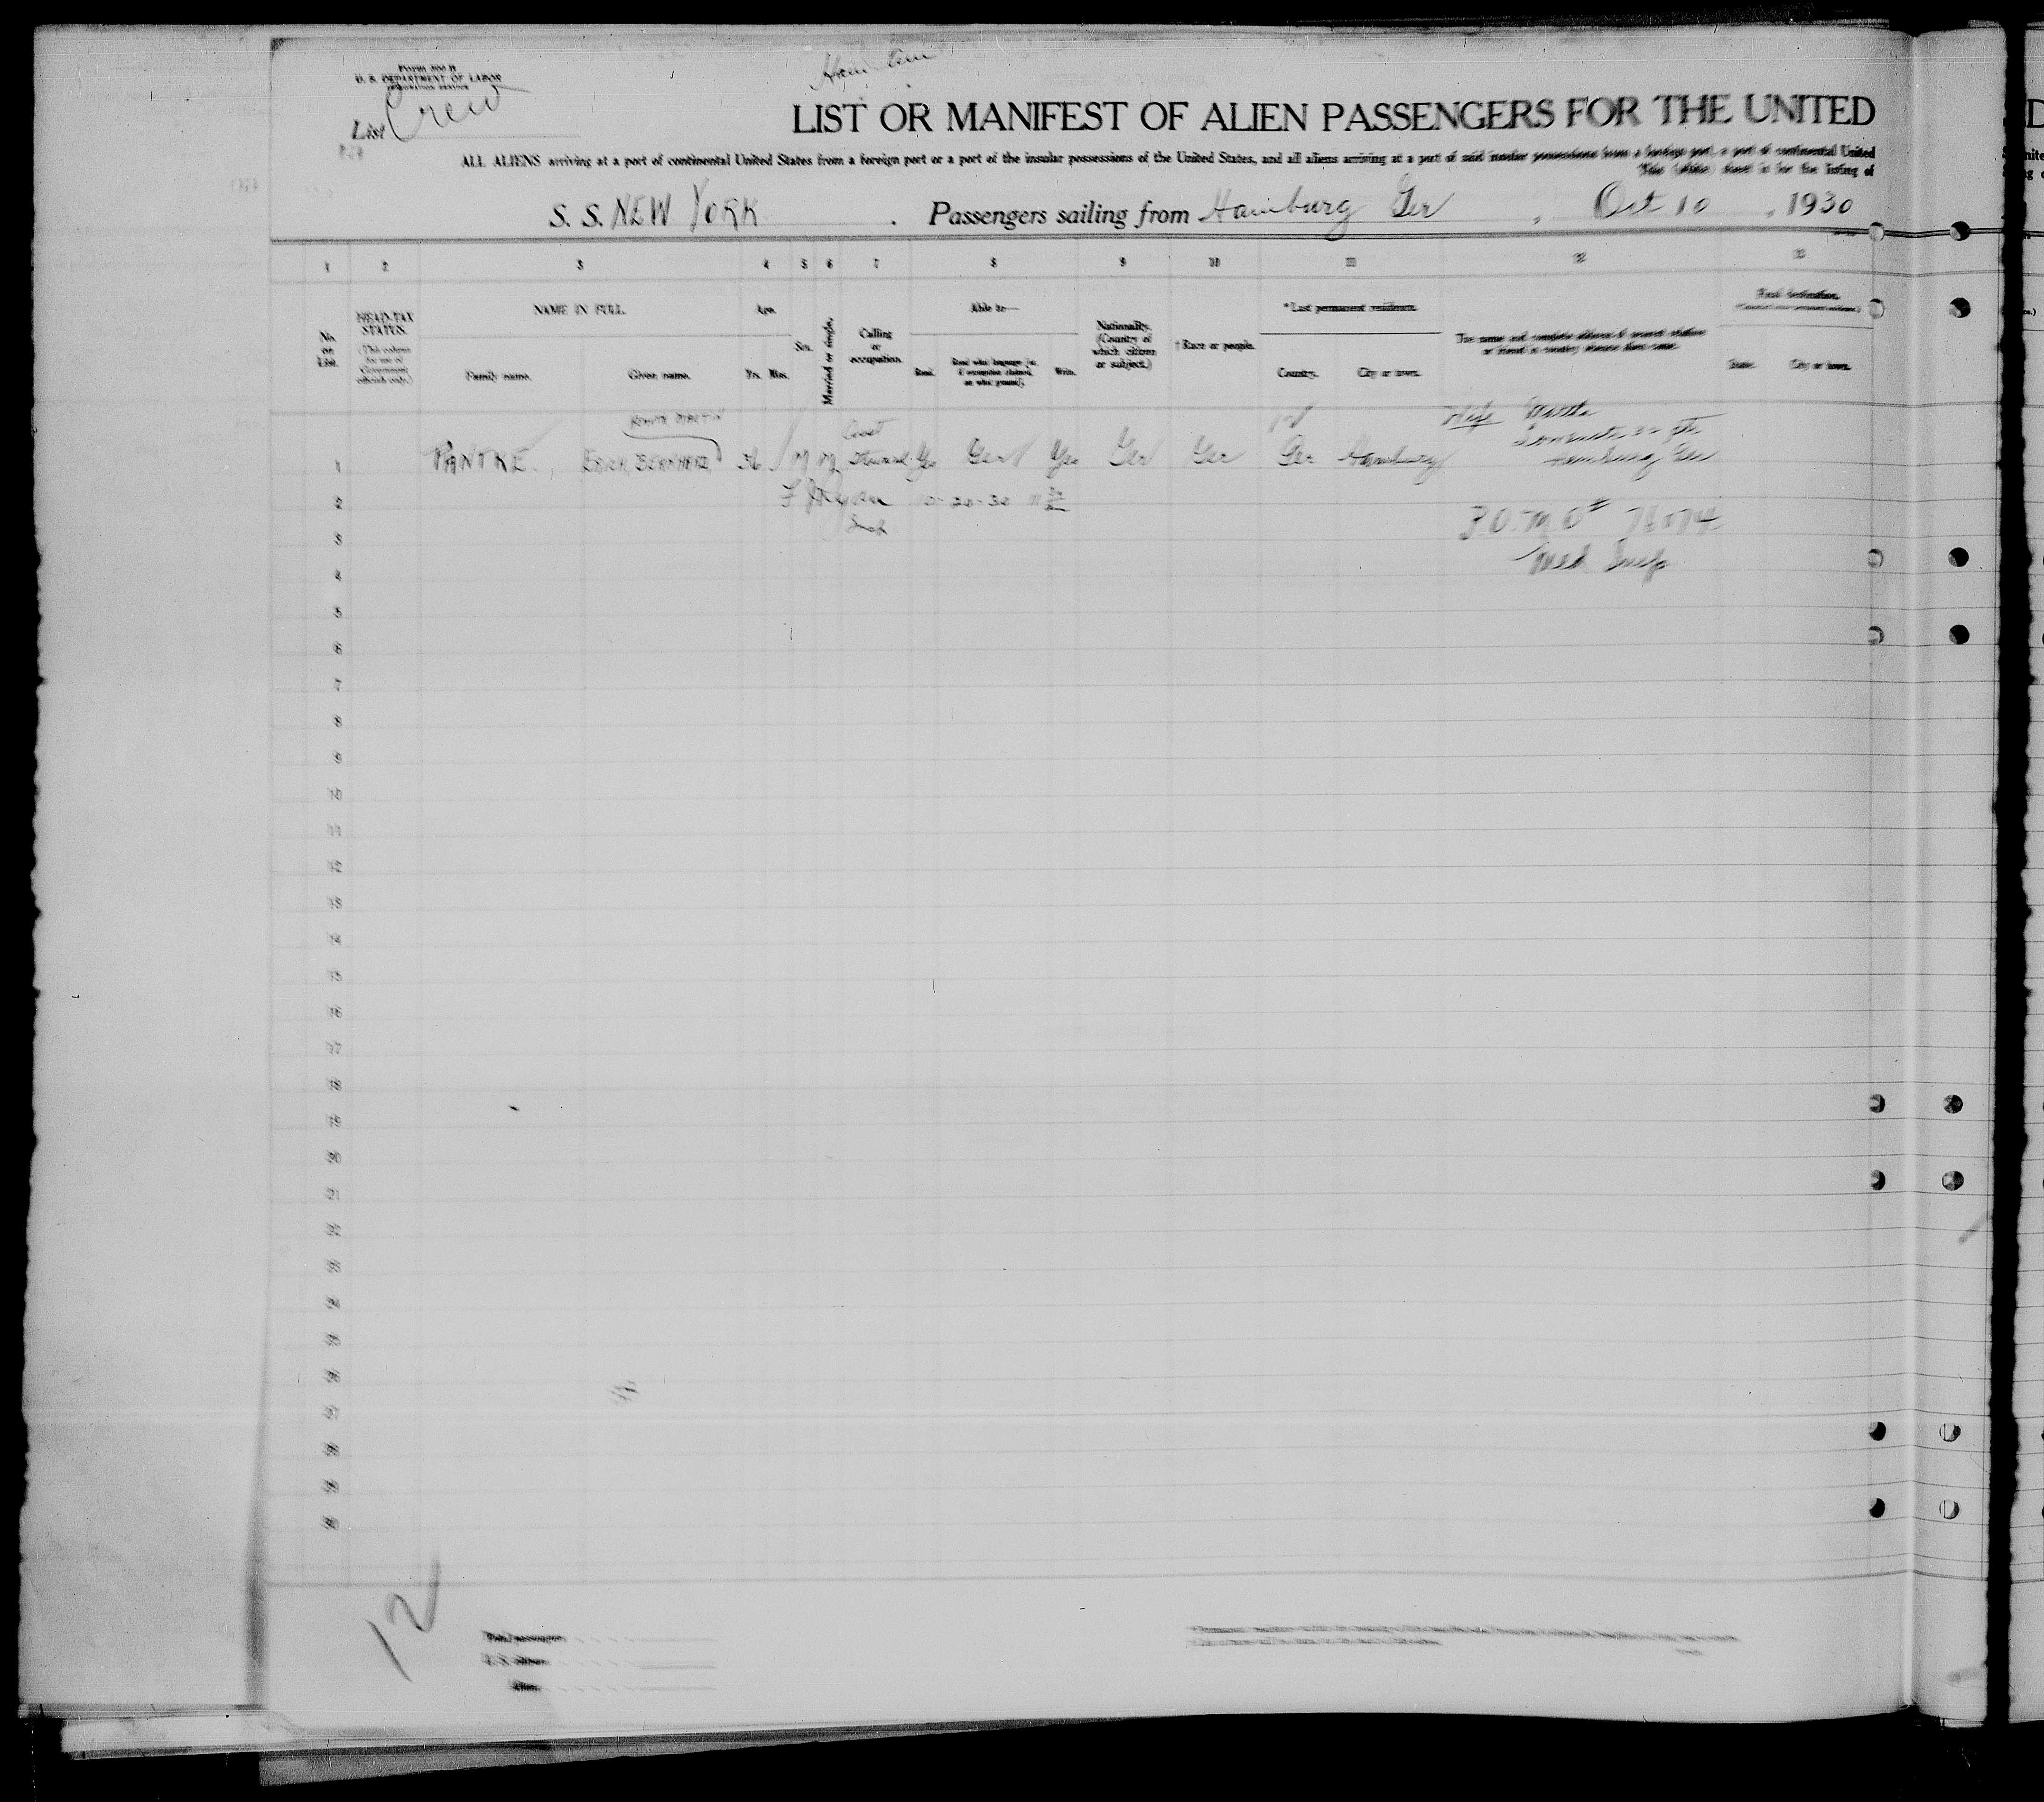 Form 500 B
U. S. DEPARTMENT OF LABOR
IMMIGRATION SERVICE
List Crew
LIST OR MANIFEST OF ALIEN PASSENGERS FOR THE UNITED
ALL ALIENS arriving at a port of continental United States from a foreign port or a port of the insular possessions of the United States, and all aliens arriving at a port of said insular possessions from a foreign port, a port of continental United
This (white) sheet is for the listing of
S. S. NEW YORK . Passengers sailing from Hamburg Ger , Oct 10 , 1930
1 2 3 4 5 6 7 8 9 10 11 12 13
No. on List.
HEAD-TAX STATUS.
(This column for use of Government officials only.)
NAME IN FULL.
Family name. Given name.
Age.
Yrs. Mos.
Sex.
Married or single.
Calling or occupation.
Able to—
Read. Read what language [or, if exemption claimed, on what ground]. Write.
Nationality. (Country of which citizen or subject.)
† Race or people.
*Last permanent residence.
Country. City or town.
The name and complete address of nearest relative or friend in country whence alien came.
Final destination.
State. City or town.
Wife Martha
1 PANTKE, ERICH BERNHARD 36 M M Steward Yes Ger Yes Ger Ger Ger Hamburg
Hamburg Ger
2 10-20-30
Insp
3
Med Insp
4
5
6
7
8
9
10
11
12
13
14
15
16
17
18
19
20
21
22
23
24
25
26
27
28
29
30
12
Total passengers
U. S. citizens
Aliens